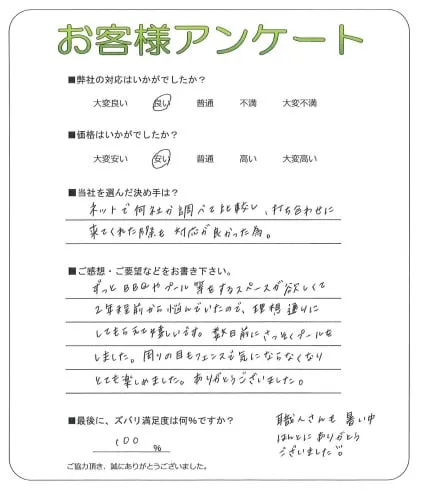 お客様アンケート
■弊社の対応はいかがでしたか？
大変良い 良い 普通 不満 大変不満
■価格はいかがでしたか？
大変安い 安い 普通 高い 大変高い
■当社を選んだ決め手は？
ネットで何社か調べて比較し、打ち合わせに
来てくれた際も対応が良かった為。
■ご感想・ご要望などをお書き下さい。
ずっとBBQやプール等をするスペースが欲しくて
2年程前から悩んでいたので、理想通りに
してもらえて嬉しいです。数日前にさっそくプールを
しました。周りの目もフェンスで気にならなくなり
とても楽しめました。ありがとうございました。
■最後に、ズバリ満足度は何%ですか？
100 %
職人さんも暑い中
ほんとにありがとう
ございました!!
ご協力頂き、誠にありがとうございました。